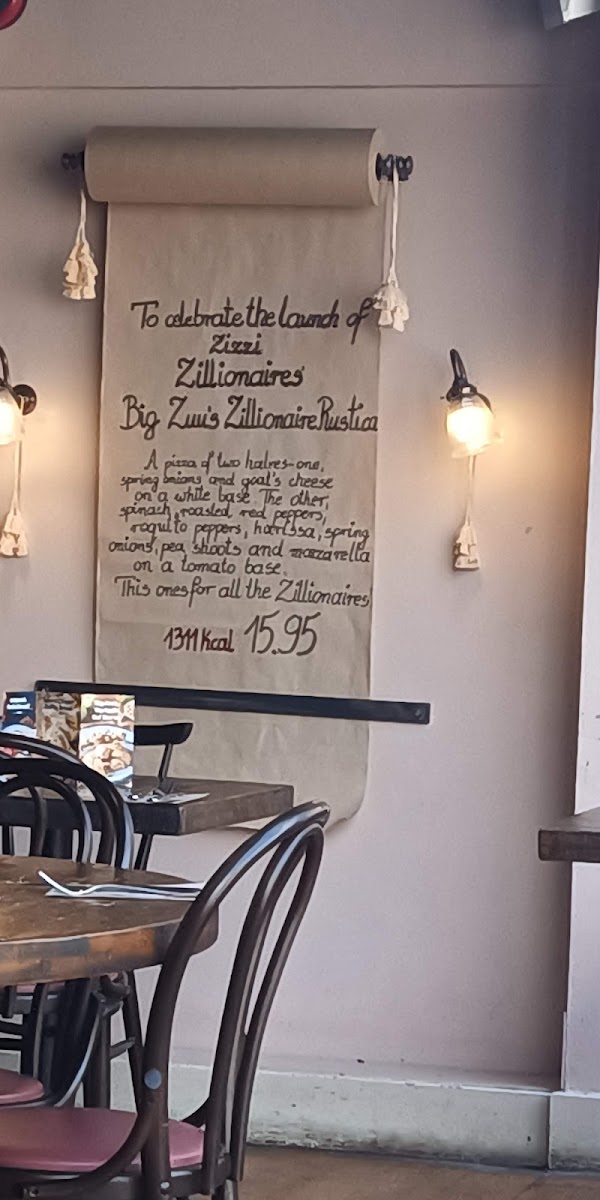 To celebrate the launch of
Zizzi
Zillionaires
Big Zuu's Zillionaire Rustica
A pizza of two halves-one,
spring onions and goat's cheese
on a white base. The other,
spinach, roasted red peppers,
roquito peppers, harissa, spring
onions, pea shoots and mozzarella
on a tomato base.
This ones for all the Zillionaires
1311 kcal 15.95